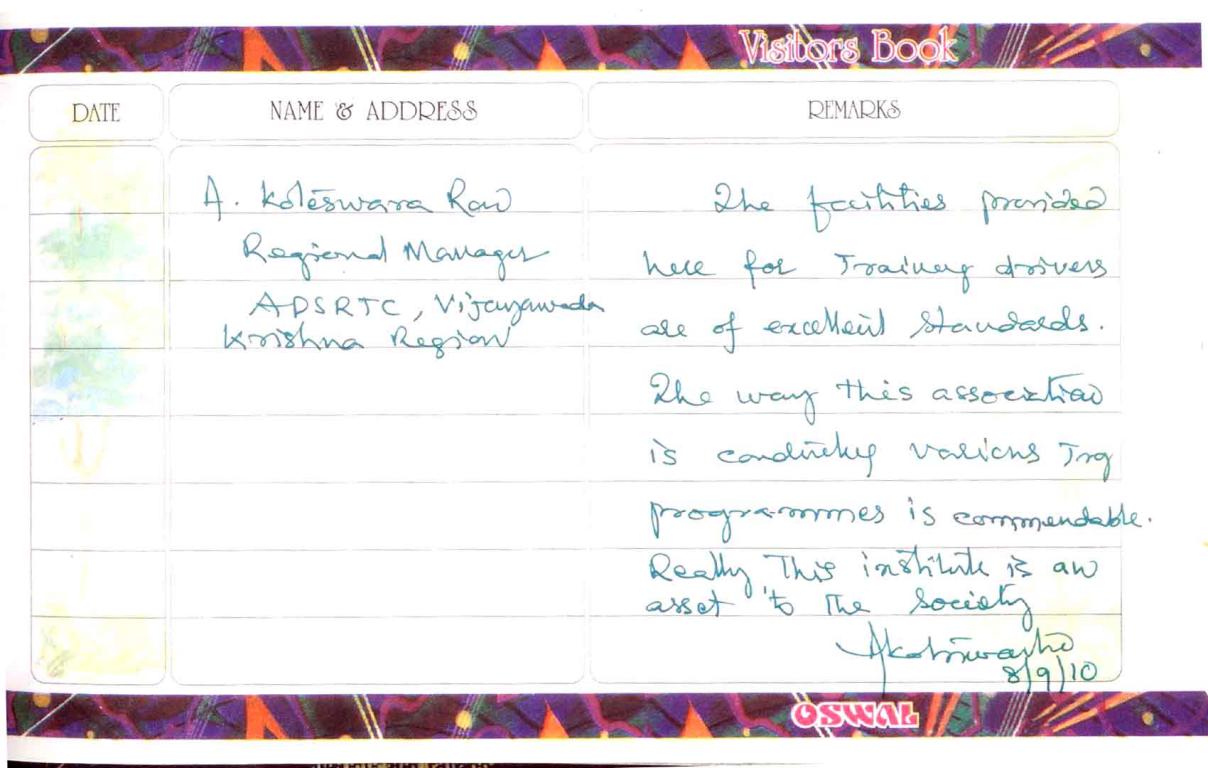 Visitors Book
DATE
NAME & ADDRESS
REMARKS
A. Koteswara Rao
Regional Manager
APSRTC, Vijayawada
Krishna Region
The facilities provided
here for Training drivers
are of excellent standards.
The way this association
is conducting various Trg
programmes is commendable.
Really This institute is an
asset to The Society
8/9/10
OSWAL